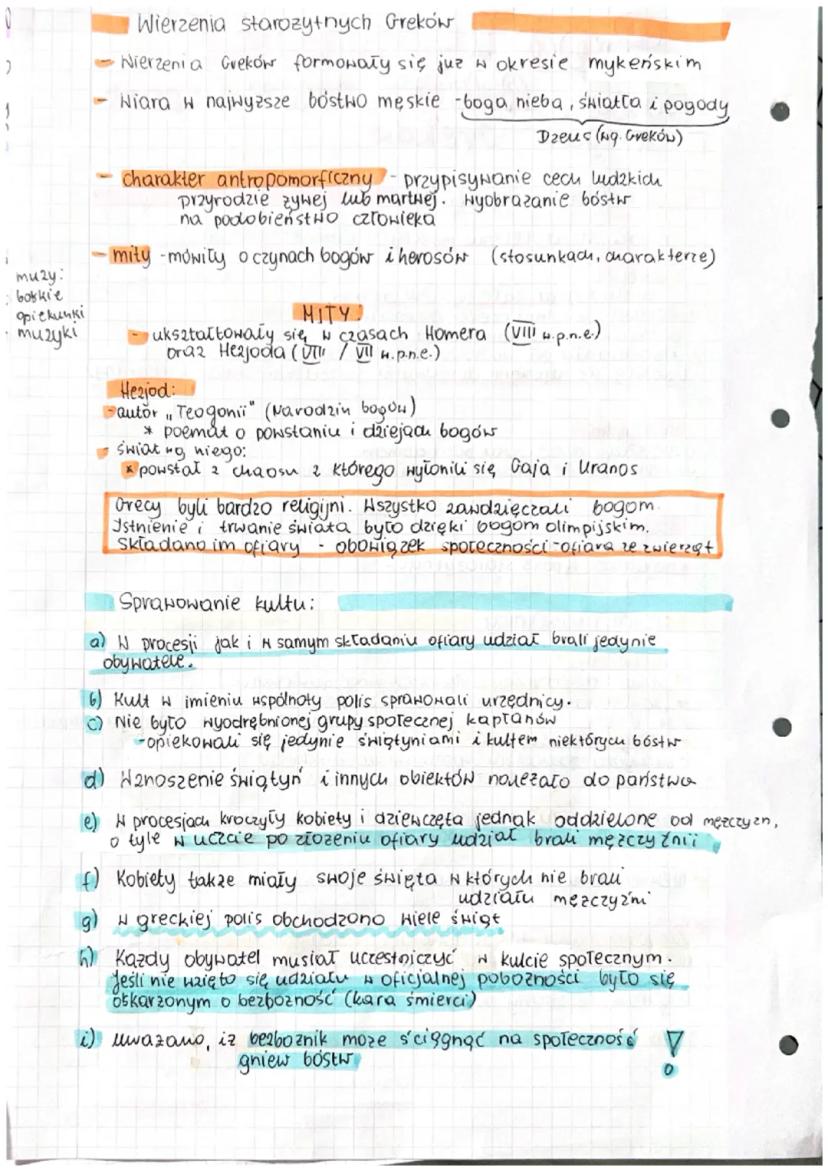 Wierzenia starożytnych Greków
- Wierzenia Greków formowały się już w okresie mykeńskim
- Wiara w najwyższe bóstwo męskie - boga nieba, światła i pogody
Dzeus (wg. Greków)
- charakter antropomorficzny - przypisywanie cech ludzkich
przyrodzie żywej lub martwej. wyobrażanie bóstw
na podobieństwo człowieka
- mity - mówiły o czynach bogów i herosów (stosunkach, charakterze)
muzy:
boskie
opiekunki
muzyki
MITY:
- ukształtowały się w czasach Homera (VIII w.p.n.e.)
oraz Hezjoda (VIII / VII w.p.n.e.)
Hezjod:
- autor „Teogonii" (Narodzin bogów)
* poemat o powstaniu i dziejach bogów
- świat wg niego:
* powstał z chaosu z którego wyłonili się Gaja i Uranos
Grecy byli bardzo religijni. Wszystko zawdzięczali bogom.
Istnienie i trwanie świata było dzięki bogom olimpijskim.
Składano im ofiary - obowiązek społeczności - ofiara ze zwierząt
Sprawowanie kultu:
a) W procesji jak i w samym składaniu ofiary udział brali jedynie
obywatele.
b) Kult w imieniu wspólnoty polis sprawowali urzędnicy.
c) Nie było wyodrębnionej grupy społecznej kapłanów
- opiekowali się jedynie świętyniami i kultem niektórych bóstw
d) Wznoszenie świątyń i innych obiektów należało do państwa
e) W procesjach kroczyły kobiety i dziewczęta jednak oddzielone od mężczyzn,
o tyle w uczcie po złożeniu ofiary udział brali mężczyźnii
f) Kobiety także miały swoje święta w których nie brali
udziału mężczyźni
g) w greckiej polis obchodzono wiele świąt
h) Każdy obywatel musiał uczestniczyć w kulcie społecznym.
Jeśli nie wzięto się udziału w oficjalnej pobożności było się
oskarżonym o bezbożność (kara śmierci)
i) uważano, iż bezbożnik może ściągnąć na społeczność
gniew bóstw !